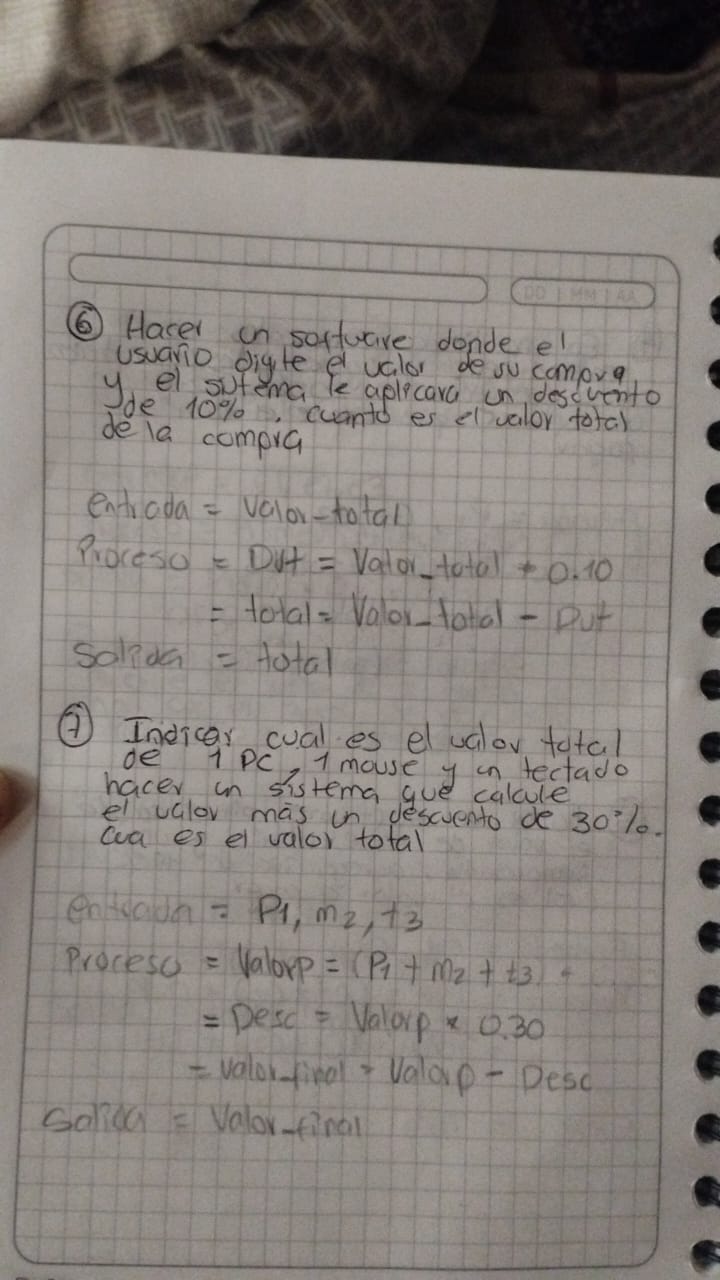 DD | MM | AA
⑥ Hacer un software donde el
usuario digite el valor de su compra
y el sistema le aplicara un descuento
de 10%. cuanto es el valor total
de la compra
entrada = Valor_total
Proceso = Dut = Valor_total * 0.10
= total = Valor_total - Dut
Salida = total
⑦ Indicar cual es el valor total
de 1 PC, 1 mouse y un teclado
hacer un sistema que calcule
el valor más un descuento de 30%.
cua es el valor total
entrada = P1, m2, t3
Proceso = Valorp = (P1 + m2 + t3)
= Desc = Valorp * 0.30
= valor_final = Valorp - Desc
Salida = Valor_final